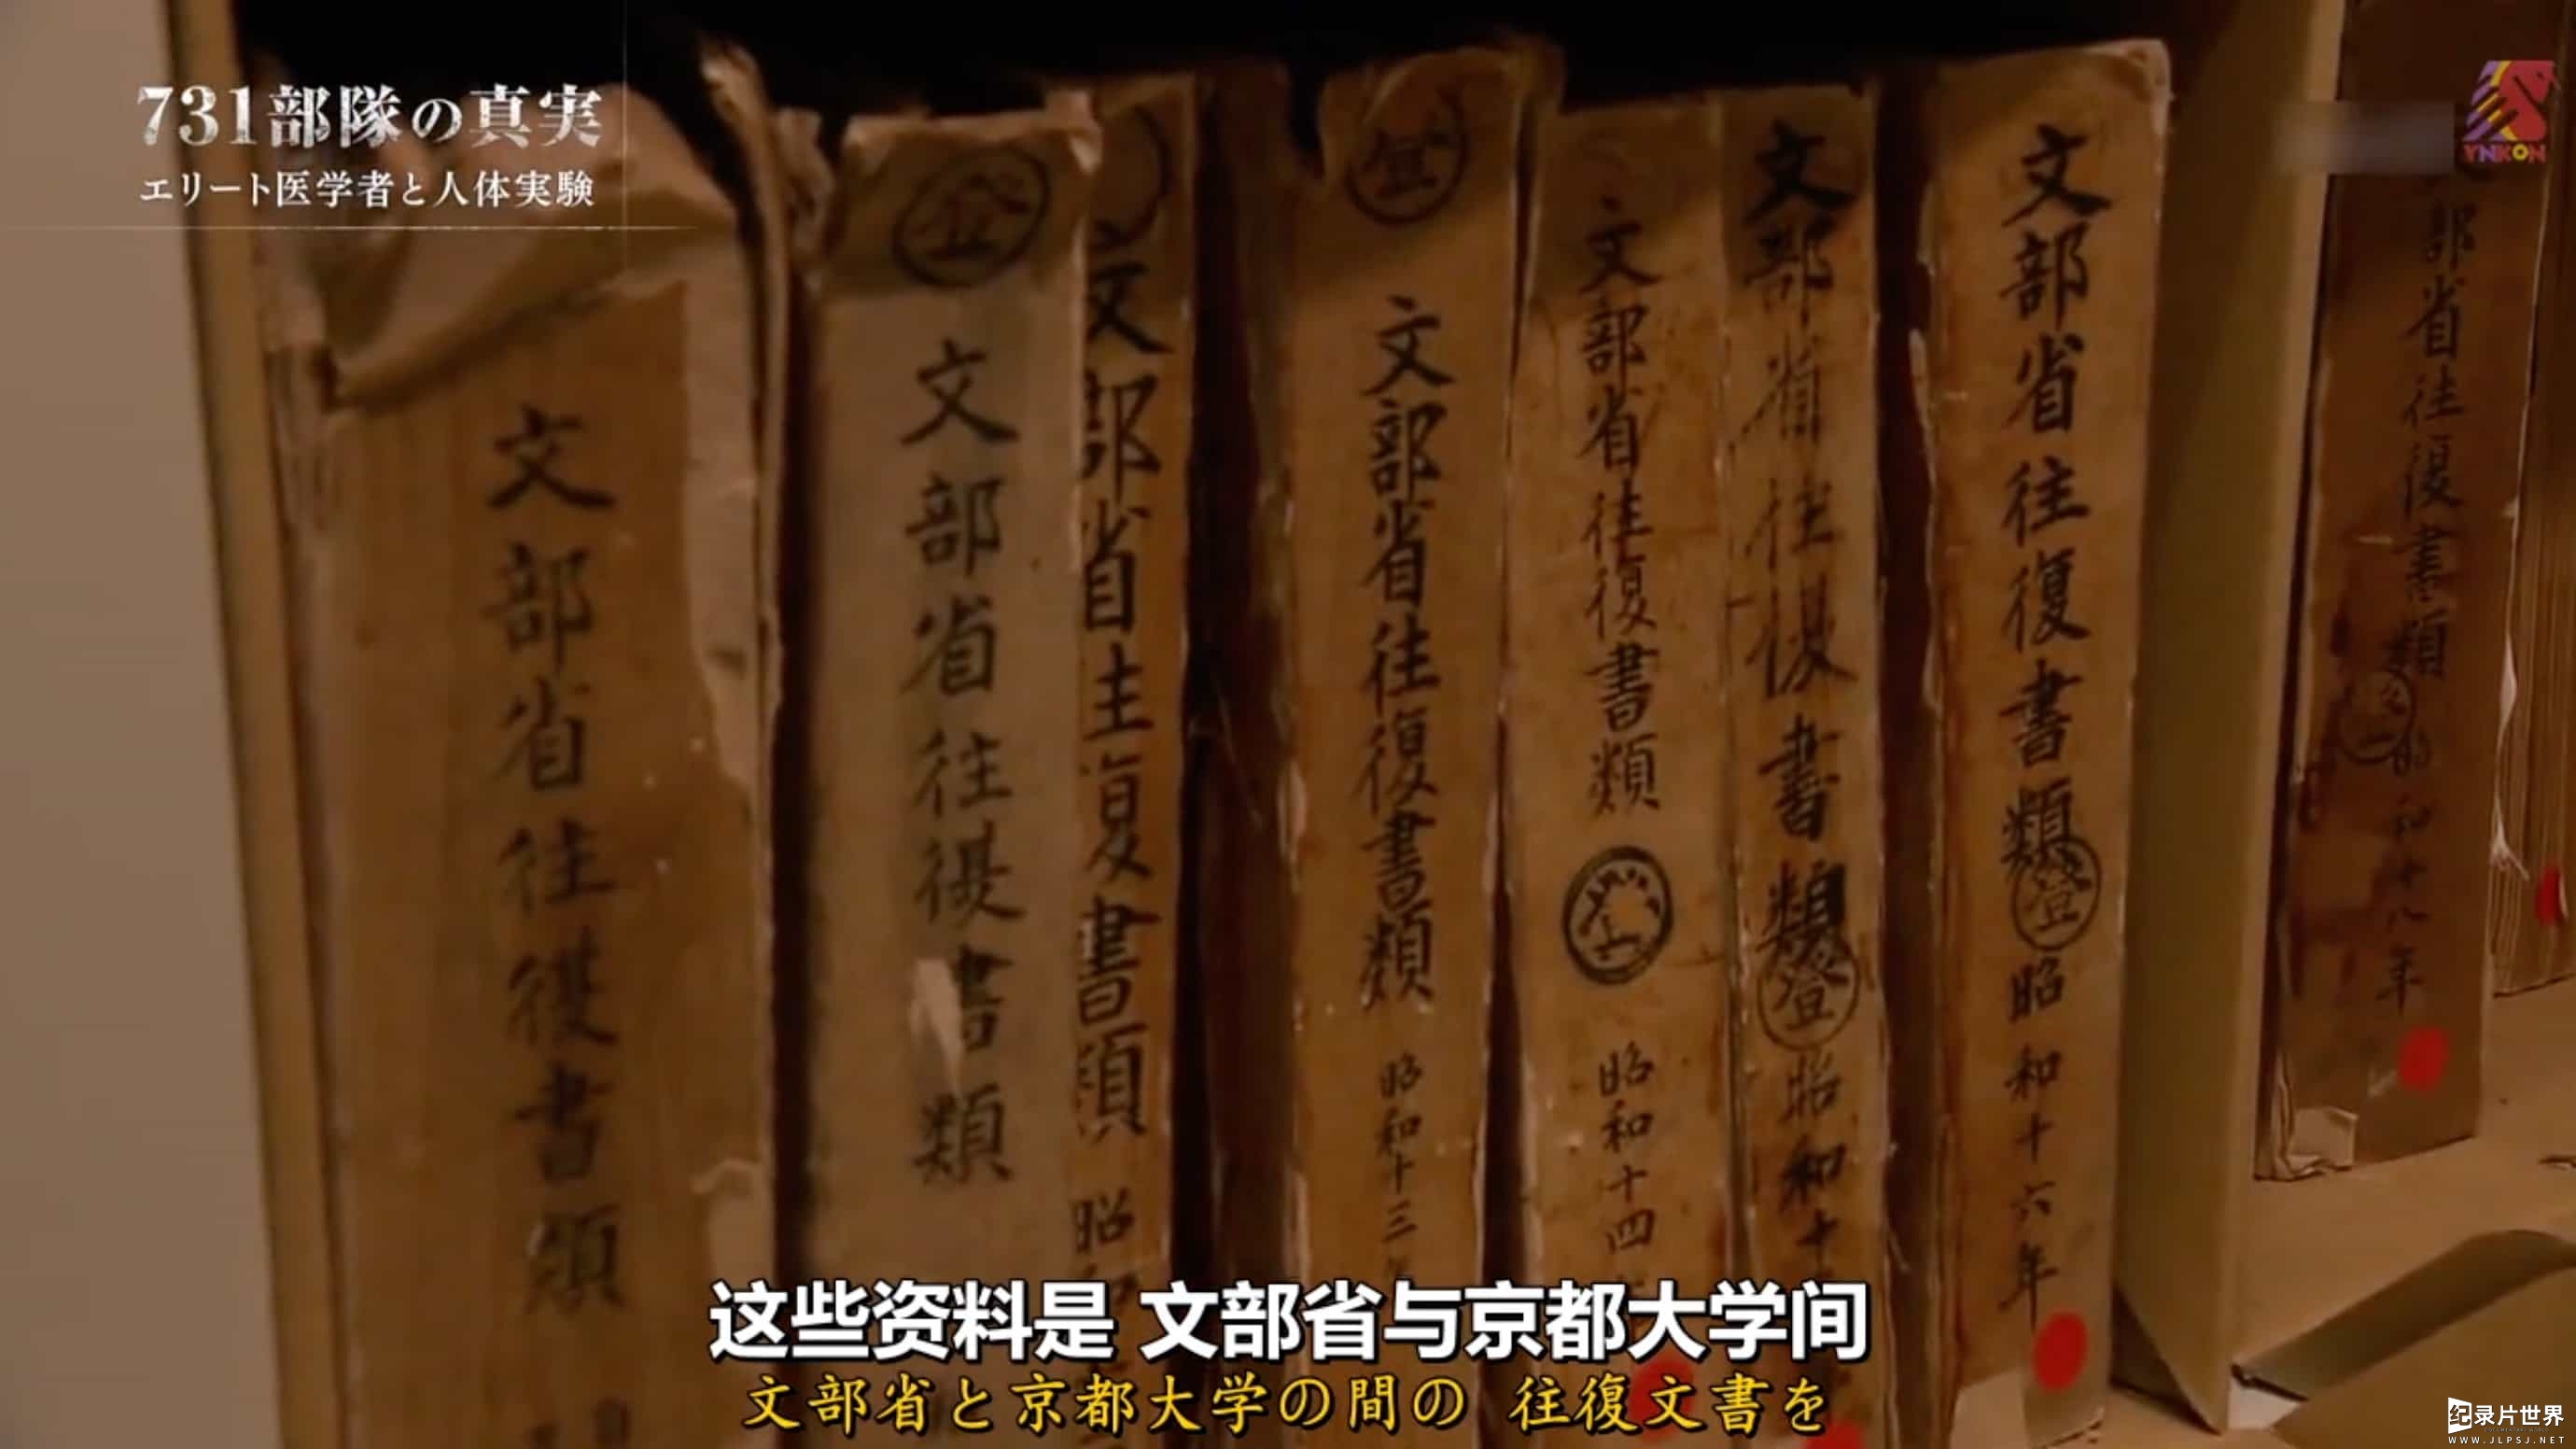 731部隊の真実
エリート医学者と人体実験
YNKON
文部省往復書類
文部省往復書類
文部省往復書類 昭
文部省往復書類 昭和十三年
文部省往復書類 昭和十四
文部省往復書類 登 昭和十
文部省往復書類 登 昭和十六年
部省往復書類 昭和十八年
这些资料是 文部省与京都大学间
文部省と京都大学の間の 往復文書を
纪录片世界
WWW.JLPSJ.NET